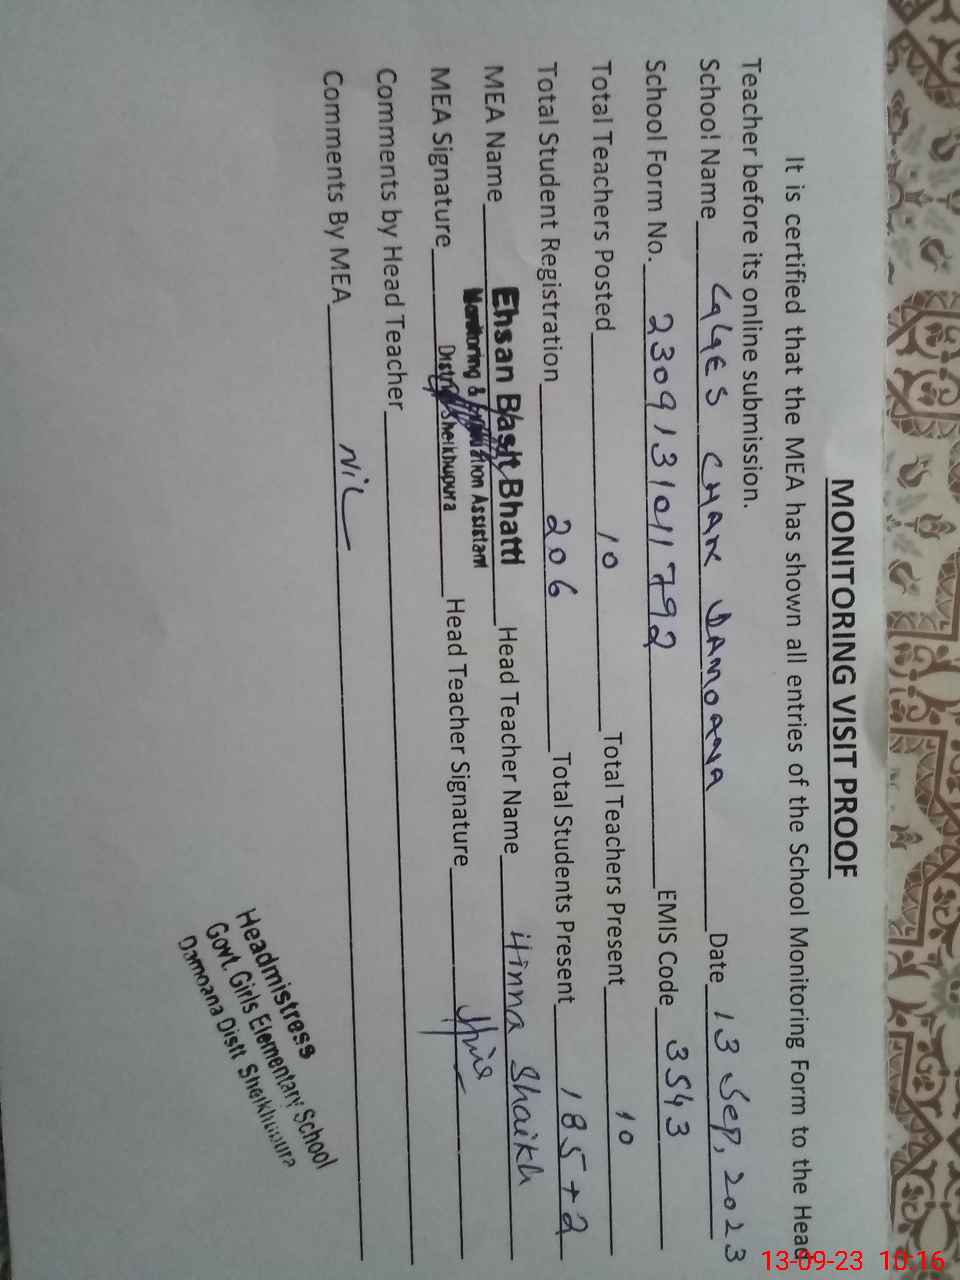 MONITORING VISIT PROOF
It is certified that the MEA has shown all entries of the School Monitoring Form to the Head
Teacher before its online submission.
School Name GGES CHAK DAMOANA Date 13 Sep, 2023
School Form No. 2309131011792 EMIS Code 3543
Total Teachers Posted 10 Total Teachers Present 10
Total Student Registration 206 Total Students Present 185+2
MEA Name Ehsan Basit Bhatti Head Teacher Name Hinna Shaikh
Monitoring & Evaluation Assistant
MEA Signature District Sheikhupura Head Teacher Signature
Comments by Head Teacher
Comments By MEA Nil
Headmistress
Govt. Girls Elementary School
Damoana Distt Sheikhupura
13-09-23 10:16